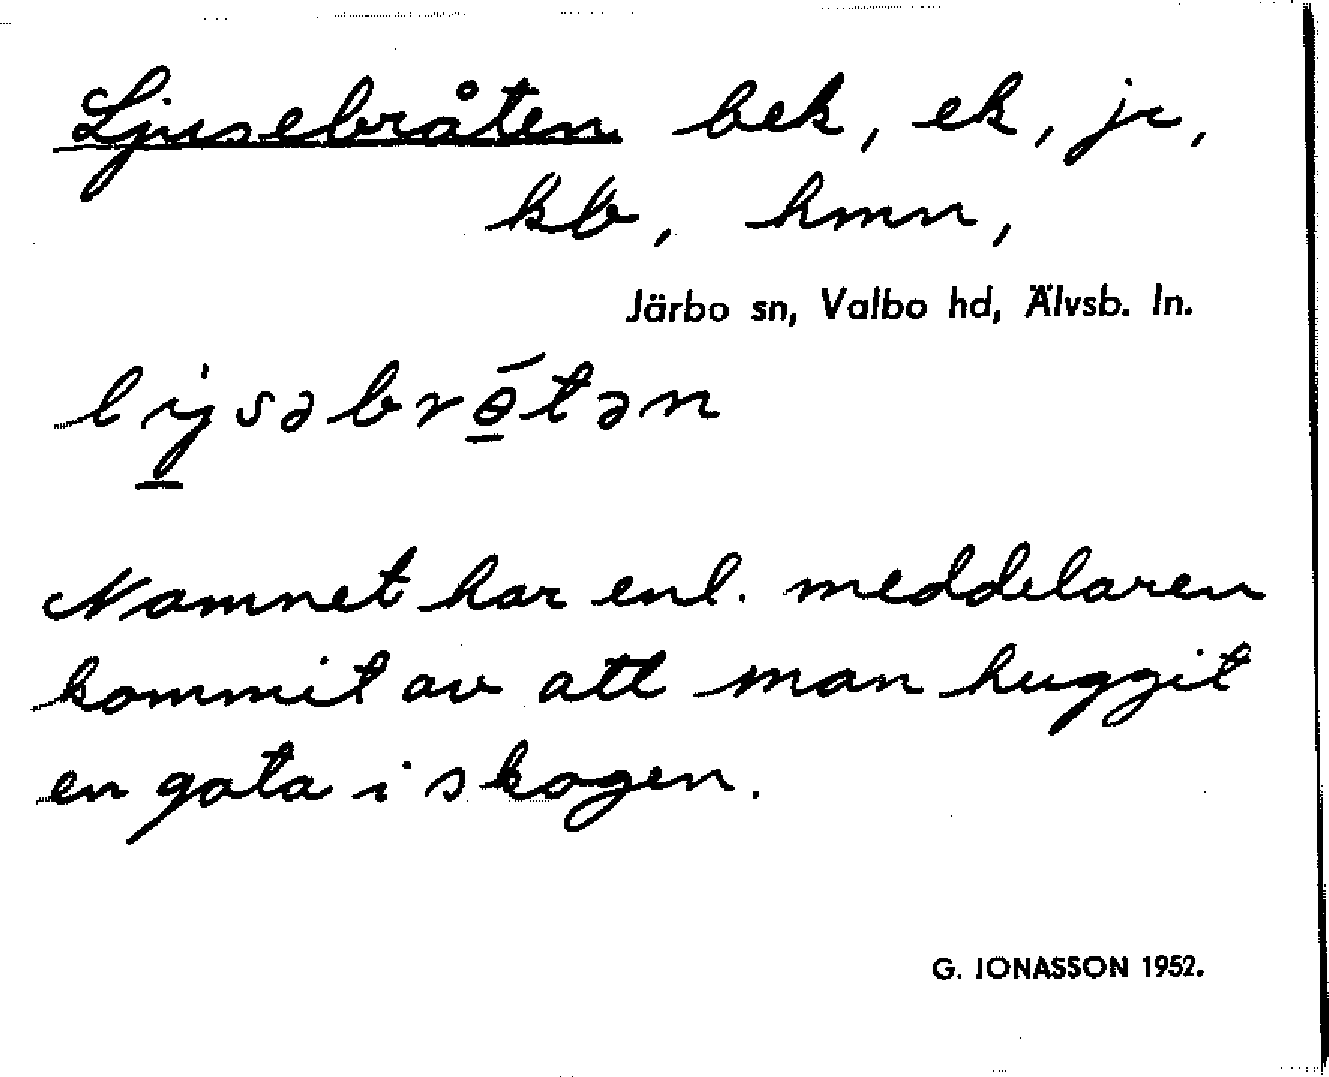 Ljusebråten bek, ek, jr,
kb, hmn,
Järbo sn, Valbo hd, Älvsb. ln.
lysəbrɵ́tən
Namnet har enl. meddelaren
kommit av att man huggit
en gata i skogen.
G. JONASSON 1952.